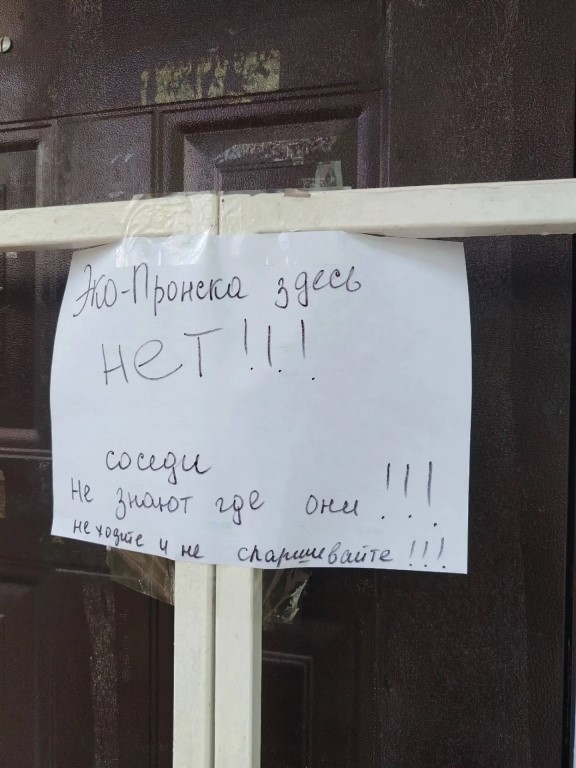 Эко-Пронска здесь
нет!!!
соседи
Не знают где они!!!
не ходите и не спаршивайте!!!